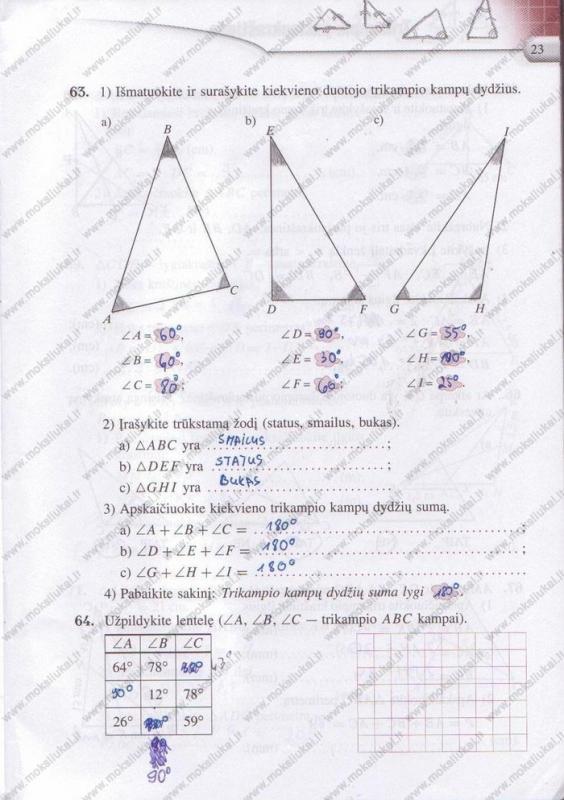 23
63. 1) Išmatuokite ir surašykite kiekvieno duotojo trikampio kampų dydžius.
a) b) c)
B E I
C
A D F G H
∠A = 60°, ∠D = 90°, ∠G = 55°,
∠B = 40°, ∠E = 30°, ∠H = 100°,
∠C = 80°; ∠F = 60°; ∠I = 25°.
2) Įrašykite trūkstamą žodį (status, smailus, bukas).
a) △ABC yra SMAILUS ;
b) △DEF yra STATUS ;
c) △GHI yra BUKAS .
3) Apskaičiuokite kiekvieno trikampio kampų dydžių sumą.
a) ∠A + ∠B + ∠C = 180° ;
b) ∠D + ∠E + ∠F = 180° ;
c) ∠G + ∠H + ∠I = 180°
4) Pabaikite sakinį: Trikampio kampų dydžių suma lygi 180°.
64. Užpildykite lentelę (∠A, ∠B, ∠C — trikampio ABC kampai).
∠A ∠B ∠C
64° 78°
90° 12° 78°
26° 59°
90°
www.mokaliukai.lt